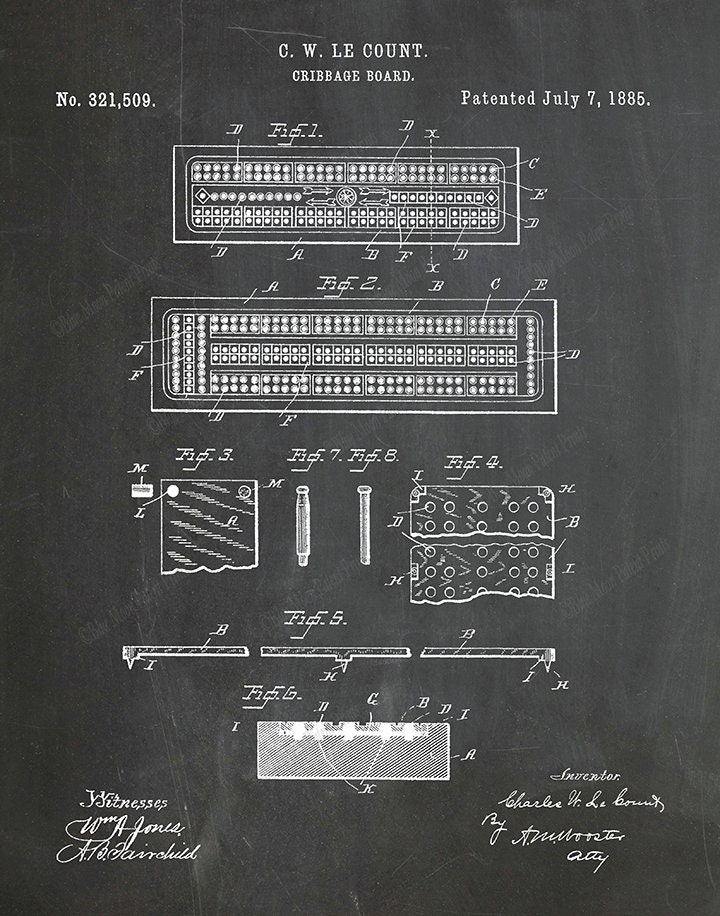 C. W. LE COUNT.
CRIBBAGE BOARD.
No. 321,509.
Patented July 7, 1885.
D Fig. 1. D x C
E
D
D A B F D
x
Fig. 2.
A B C E
D D
F
D F
Fig. 3. Fig. 7. Fig. 8. Fig. 4.
M M I H
L A D B
H I
Fig. 5.
B B
I H I H
Fig. 6.
I D G B D I
A
K
Witnesses
Wm A Jones
A. B. Fairchild
Inventor.
Charles W. Le Count
By A. M. Wooster
Atty